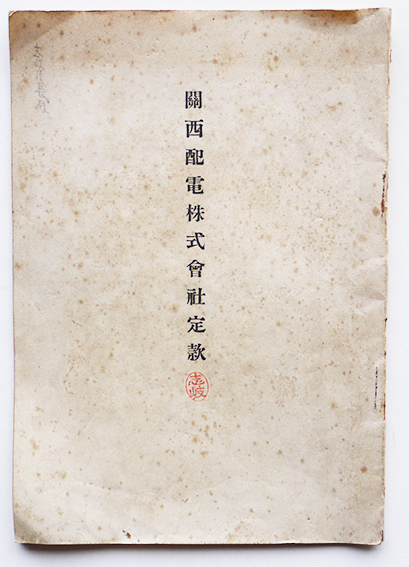 關西配電株式會社定款
志岐